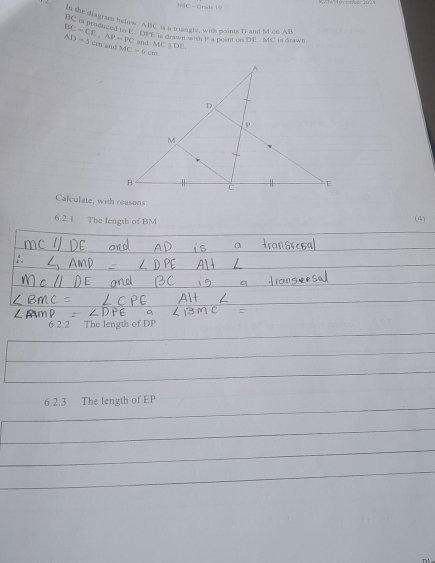 NSC – Grade 10
In the diagram below, ABC is a triangle, with points D and M on AB.
BC is produced to E. DPE is drawn with P a point on DE. MC is drawn.
BC = CE, AP = PC and MC || DE.
AD = 5 cm and MC = 6 cm.
A
D
P
M
B
C
E
Calculate, with reasons
6.2.1 The length of BM
(4)
MC // DE and AD is a transvesal
∴ ∠ AMP = ∠ DPE Alt ∠
MC // DE and BC is a transversal
∠ BMC = ∠ CPE Alt ∠
∠ AMP = ∠ DPE a ∠ BMC =
6.2.2 The length of DP
6.2.3 The length of EP